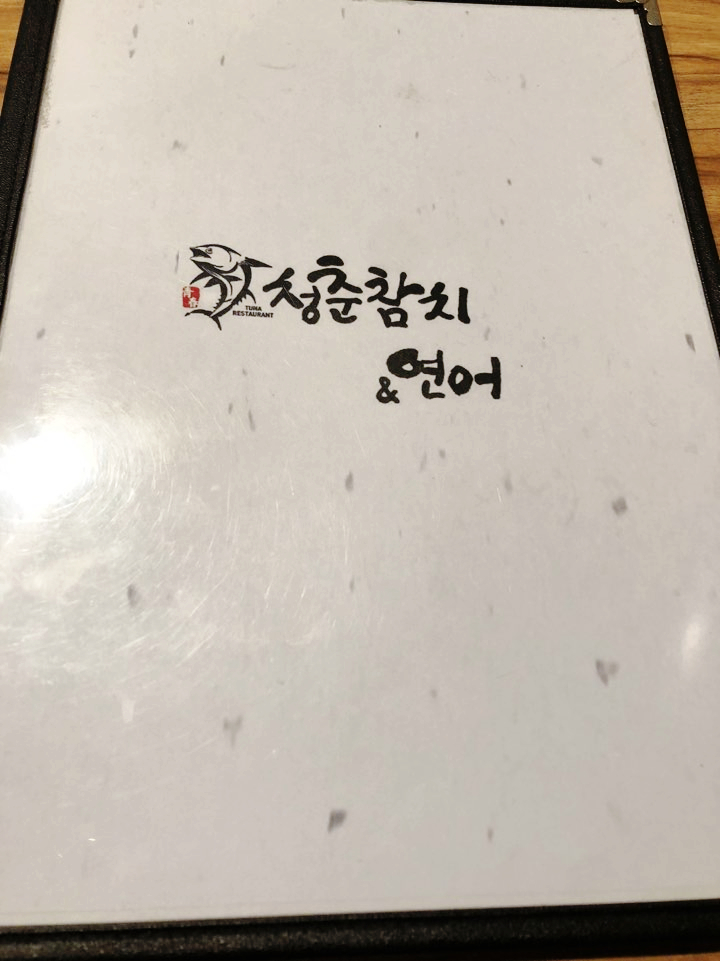 청춘참치
TUNA
RESTAURANT
&연어